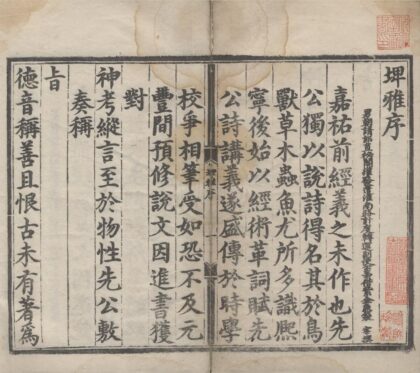 埤雅序
嘉祐前經義之未作也先
公獨以說詩得名其於鳥
獸草木蟲魚尤所多識熙
寧後始以經術革詞賦先
公詩講義遂盛傳於時學
校爭相筆受如恐不及元
豐間預修說文因進書獲
對
神考縱言至於物性先公敷
奏稱
旨
德音稱善且恨古未有著爲